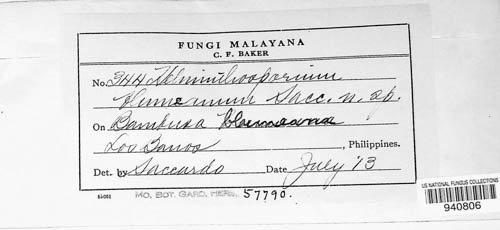 FUNGI MALAYANA
C. F. BAKER
No. 344 Helminthosporium
Sacc. n. sp.
On Bambusa blumeana
Los Banos, Philippines.
Det. by Saccardo Date July '13
MO. BOT. GARD. HERB. 57790.
US NATIONAL FUNGUS COLLECTIONS
940806